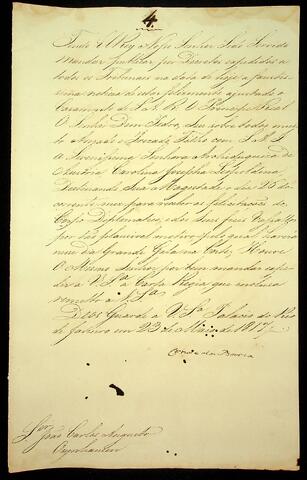 4.
Tendo ElRey Nosso Senhor Sido Servido
Mandar publicar por Decretos expedidos a
todos os Tribunaes na data de hoje a faustis-
sima noticia de estar felizmente ajustado o
Casamento de S. A. R. O Principe Real
O Senhor Dom Pedro, Seu sobre todos mui-
to Amado e Prezado Filho com S. A. I.
A Serenissima Senhora Archiduqueza de
Austria Carolina Josepha Leopoldina,
Destinando Sua Magestade o dia 25 do
corrente mez para receber as felicitações do
Corpo Diplomatico, e dos Seus fieis Vassallos
por tão plausivel motivo, pelo que haverá
nesse dia Grande Gala na Corte; Houve
O Mesmo Senhor por bem mandar expe-
dir a V. Sª a Carta Regia que inclusa
remetto a V. Sª
Deos Guarde a V. Sª Palacio do Rio
de Janeiro em 23 de Maio de 1817
Conde da Barca
Snr João Carlos Augusto
Oyenhausen